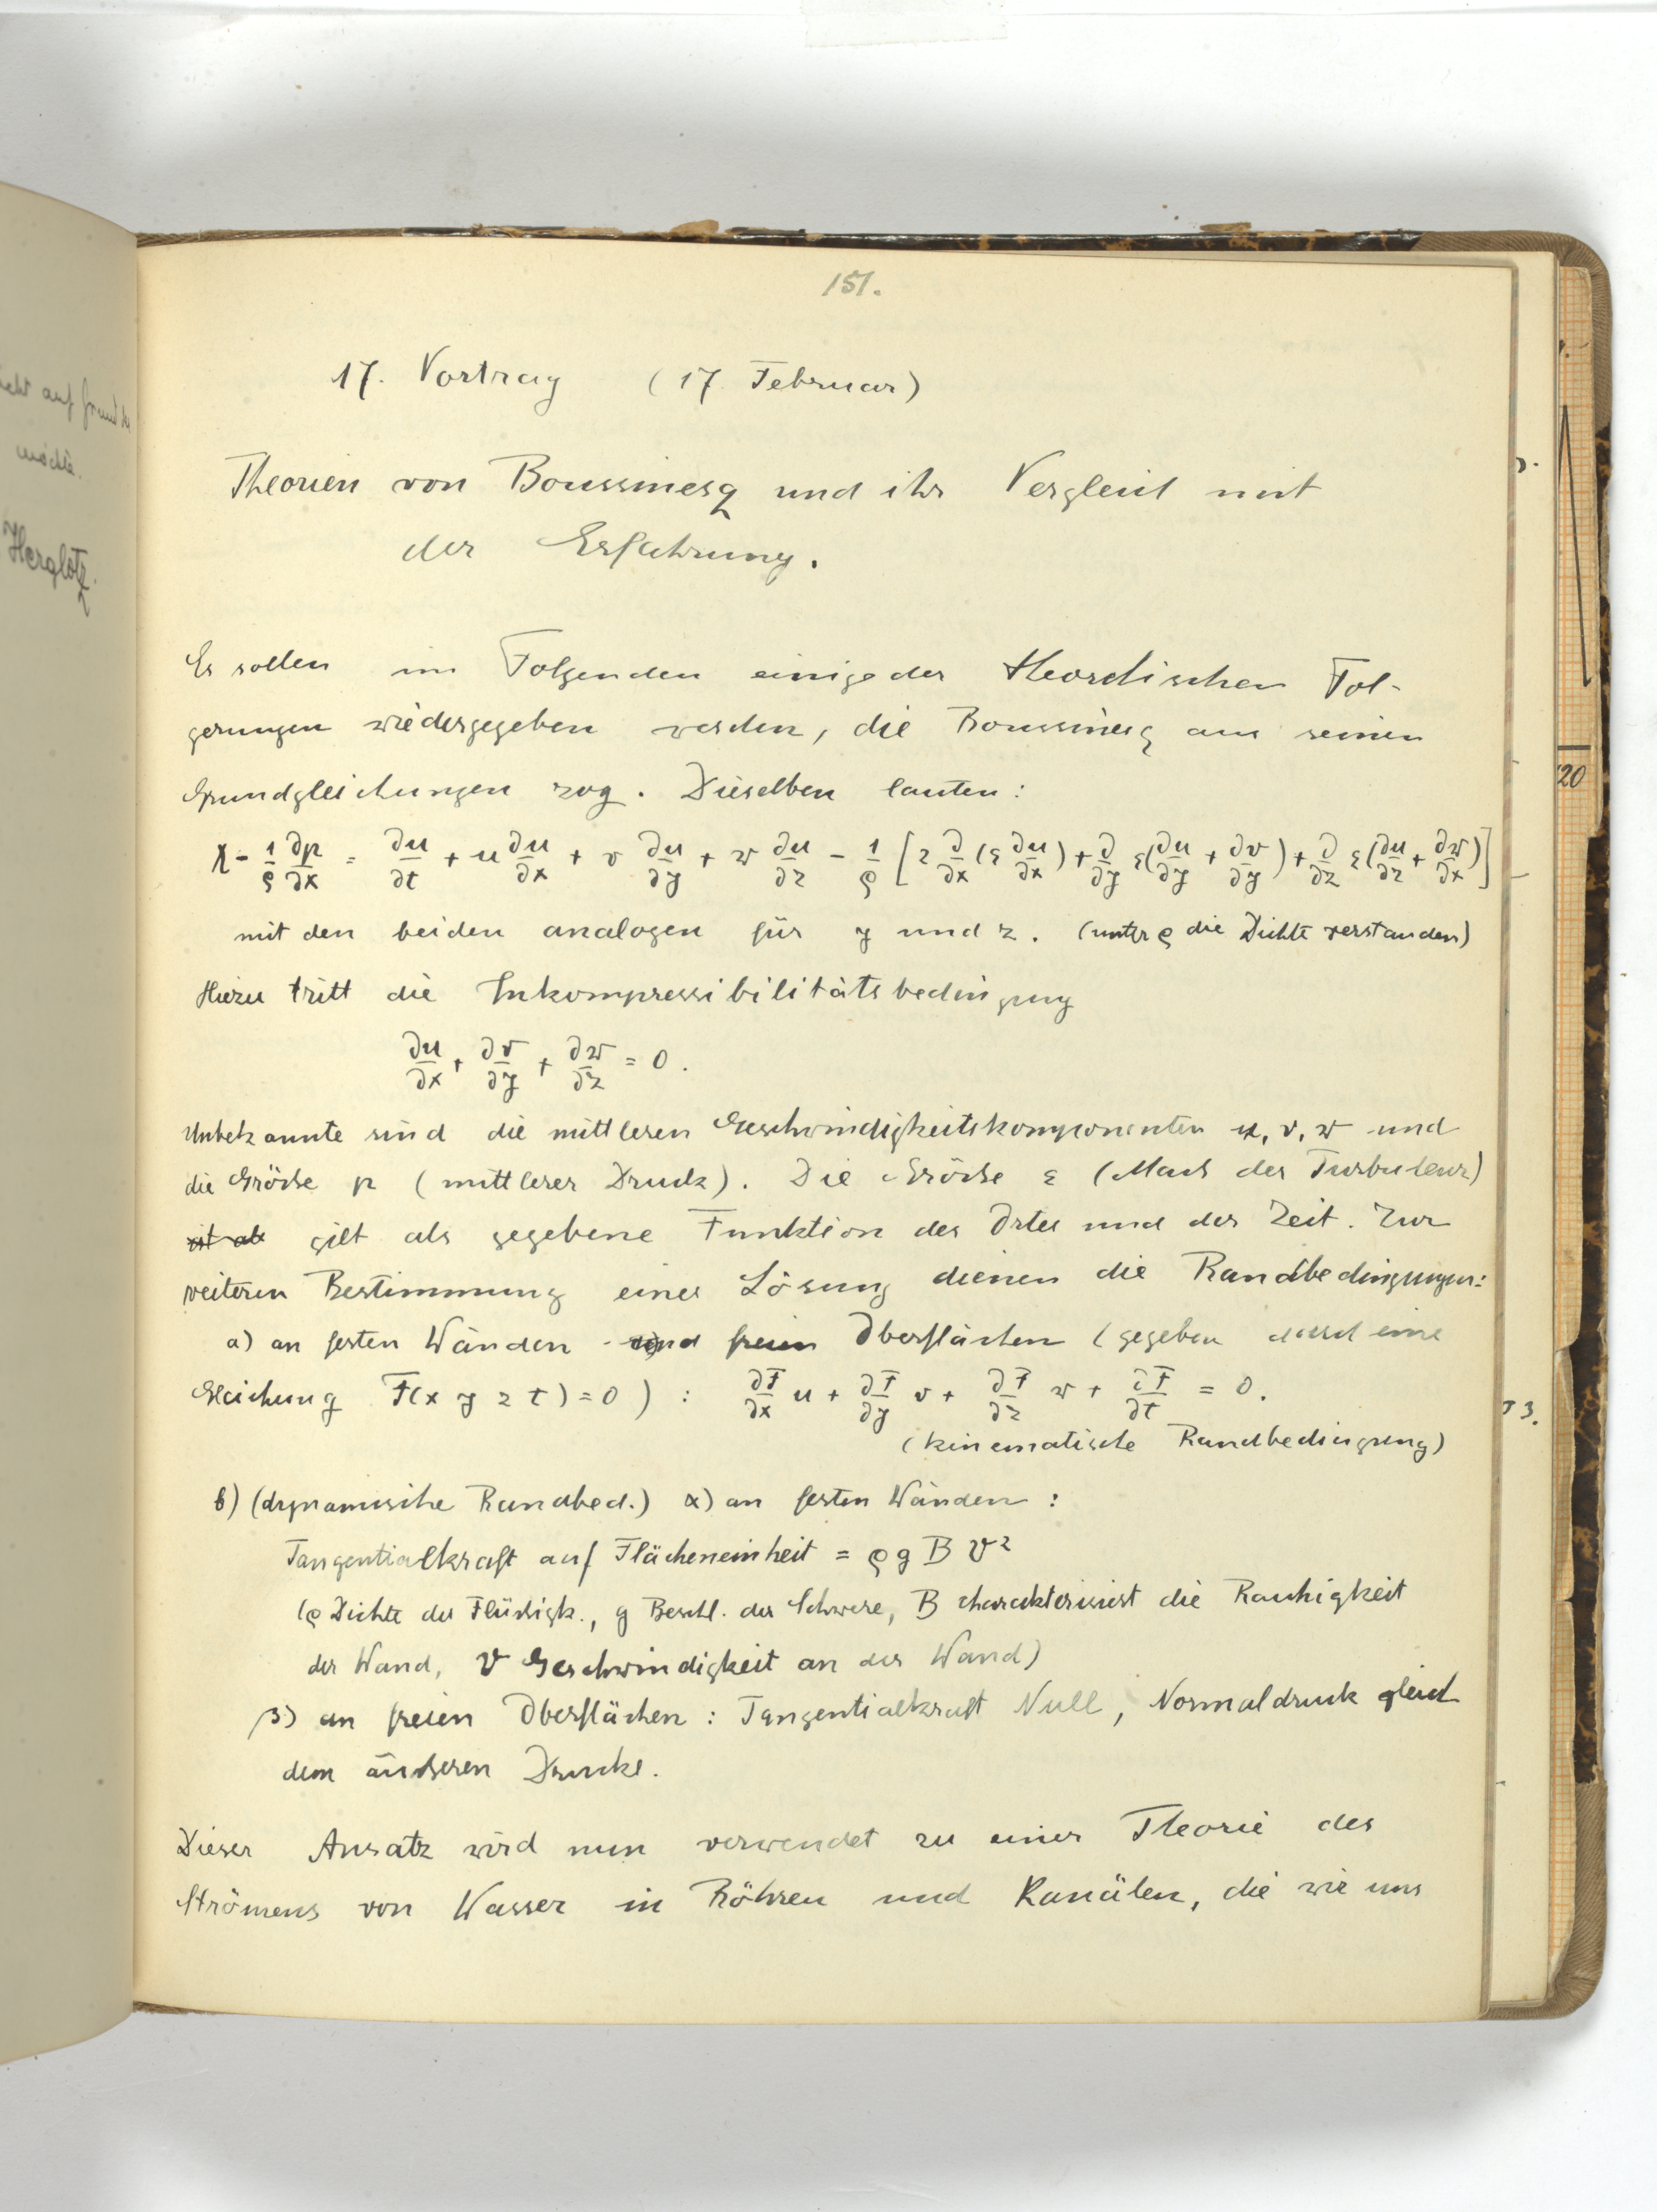 151.
17. Vortrag (17 Februar)
Theorien von Boussinesq und ihr Vergleich mit
der Erfahrung.
Es sollen im Folgenden einige der theoretischen Fol-
gerungen wiedergegeben werden, die Boussinesq aus seinen
Grundgleichungen zog. Dieselben lauten:
X - 1/ϱ ∂p/∂x = ∂u/∂t + u ∂u/∂x + v ∂u/∂y + w ∂u/∂z - 1/ϱ [2 ∂/∂x (ε ∂u/∂x) + ∂/∂y ε(∂u/∂y + ∂v/∂y) + ∂/∂z ε(∂u/∂z + ∂w/∂x)]
mit den beiden analogen für y und z. (unter ϱ die Dichte verstanden)
Hiezu tritt die Inkompressibilitätsbedingung
∂u/∂x + ∂v/∂y + ∂w/∂z = 0.
Unbekannte sind die mittleren Geschwindigkeitskomponenten u, v, w und
die Grösse p (mittlerer Druck). Die Grösse ε (Mass der Turbulenz)
ist als gilt als gegebene Funktion des Ortes und der Zeit. Zur
weiteren Bestimmung einer Lösung dienen die Randbedingungen:
a) an festen Wänden und freien Oberflächen (gegeben durch eine
Gleichung F(x y z t) = 0) : ∂F/∂x u + ∂F/∂y v + ∂F/∂z w + ∂F/∂t = 0.
(kinematische Randbedingung)
b) (dynamische Randbed.) α) an festen Wänden :
Tangentialkraft auf Flächeneinheit = ϱ g B V²
(ϱ Dichte der Flüssigk., g Beschl. der Schwere, B charakterisiert die Rauhigkeit
der Wand, V Geschwindigkeit an der Wand)
β) an freien Oberflächen : Tangentialkraft Null, Normaldruck gleich
dem äusseren Drucke.
Dieser Ansatz wird nun verwendet zu einer Theorie des
Strömens von Wasser in Röhren und Kanälen, die wir uns
auf
möchte.
Herglotz.
20